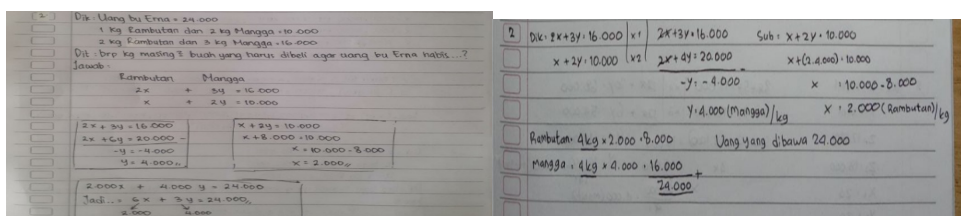 2 Dik : Uang bu Erna = 24.000
1 kg Rambutan dan 2 kg Mangga = 10.000
2 kg Rambutan dan 3 kg Mangga = 16.000
Dit : brp kg masing² buah yang harus dibeli agar uang bu Erna habis...?
Jawab -
Rambutan Mangga
2x + 3y = 16.000
x + 2y = 10.000
2x + 3y = 16.000
2x + 4y = 20.000 -
-y = -4.000
y = 4.000
x + 2y = 10.000
x + 8.000 = 10.000
x = 10.000 - 8.000
x = 2.000
2.000x + 4.000y = 24.000
Jadi.. = 6x + 3y = 24.000
2.000 4.000
2 Dik : 2x+3y = 16.000 | x1 | 2x+3y = 16.000
x + 2y = 10.000 | x2 | 2x+4y = 20.000 -
-y = -4.000
y = 4.000 (Mangga)/kg
Sub : x+2y = 10.000
x+(2.4.000) = 10.000
x = 10.000 - 8.000
x = 2.000 (Rambutan)/kg
Rambutan = 4kg x 2.000 = 8.000 Uang yang dibawa 24.000
Mangga = 4kg x 4.000 = 16.000 +
24.000